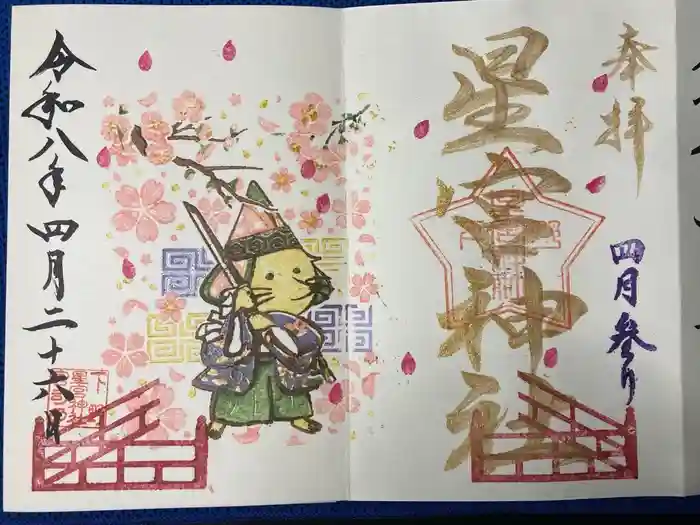 奉拝
四月参り
星宮神社
令和八年四月二十六日
下野
星宮神社